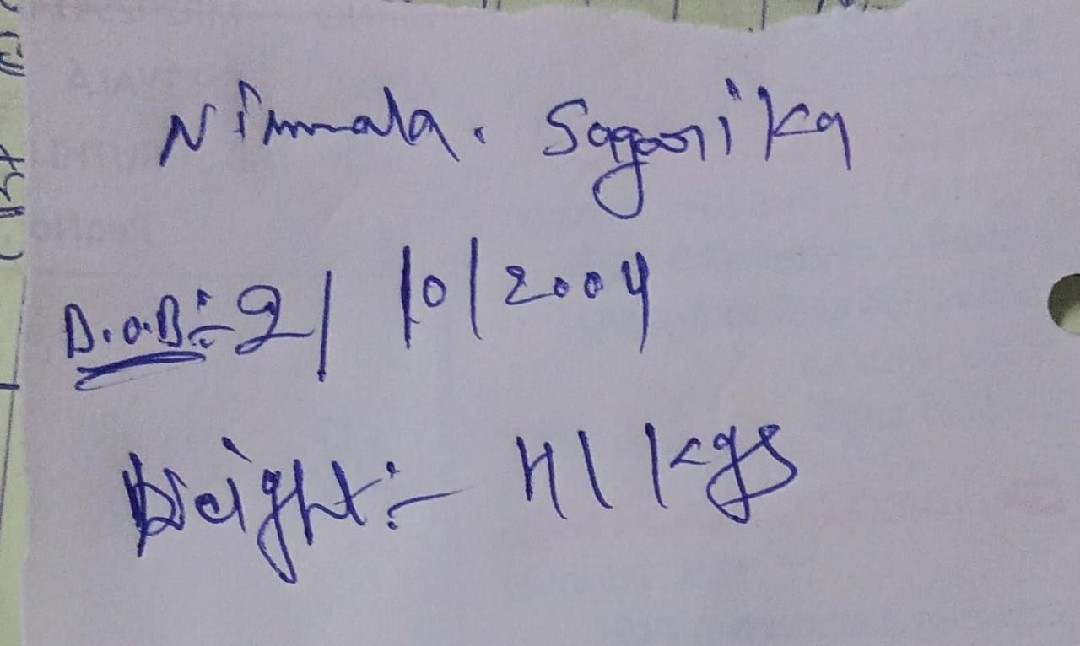 Nirmala. Sagarika
D.O.B:- 2/10/2004
Weight:- 41 kgs